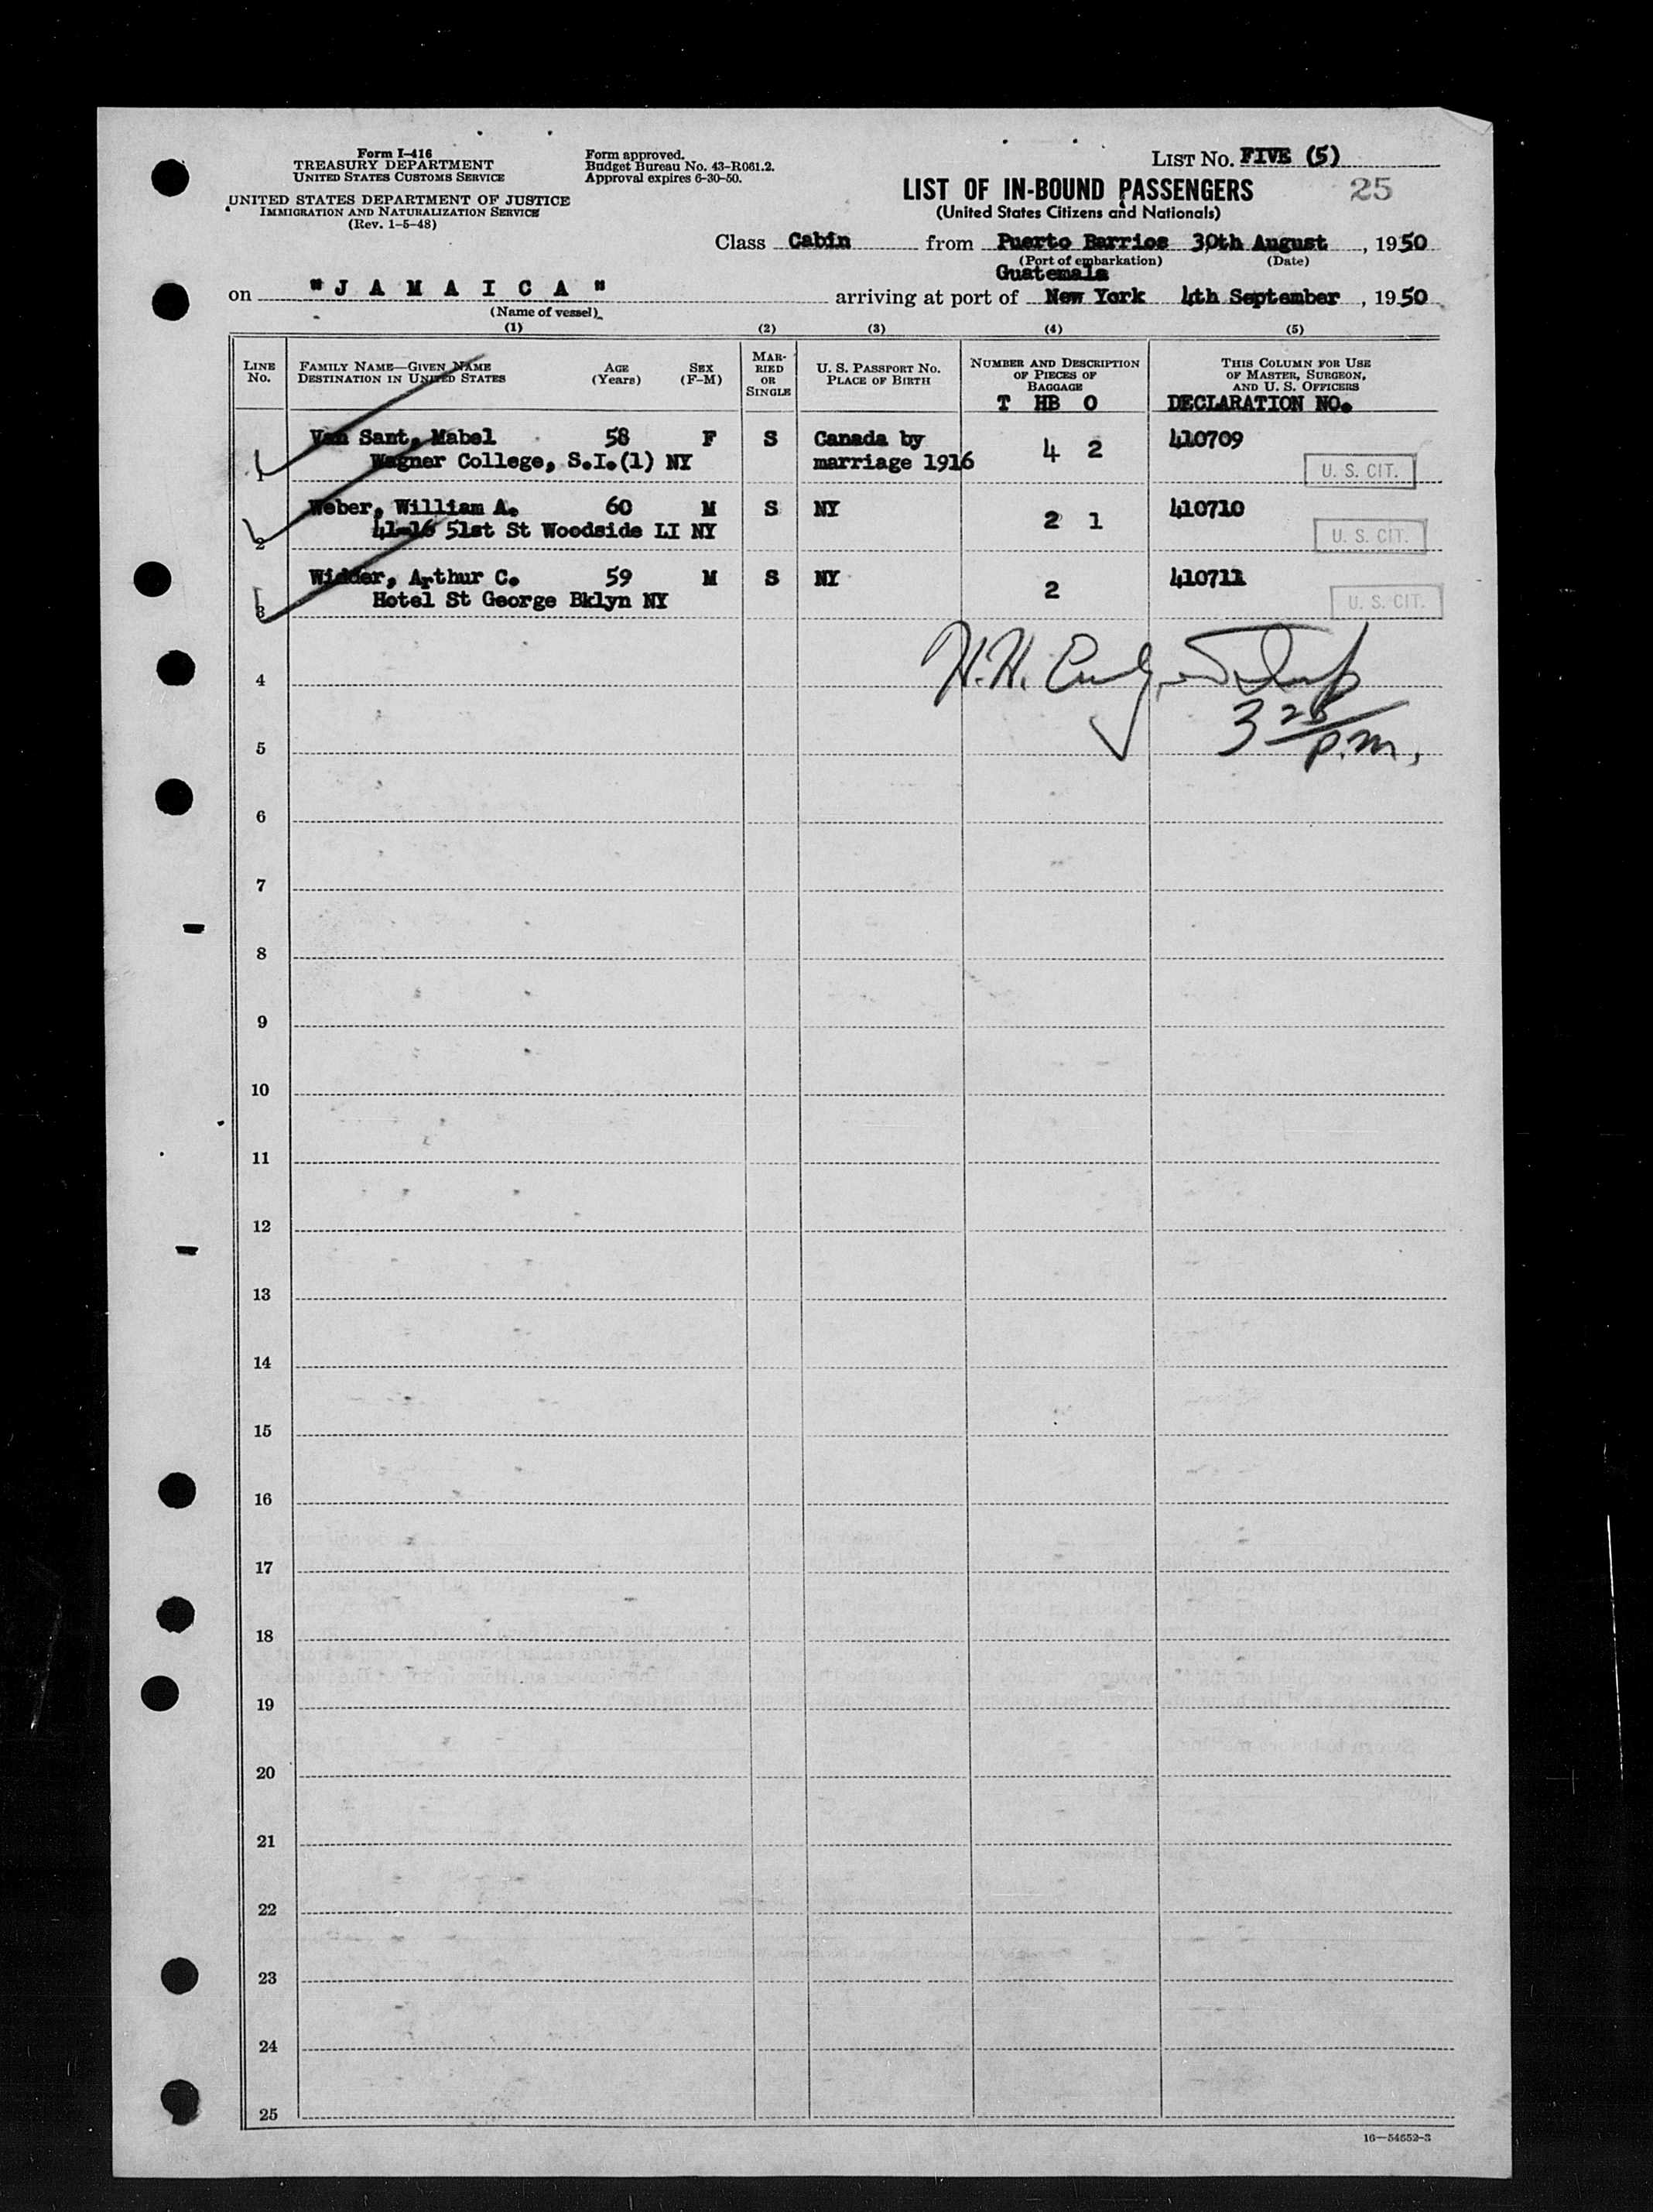 Form I-416
TREASURY DEPARTMENT
UNITED STATES CUSTOMS SERVICE
UNITED STATES DEPARTMENT OF JUSTICE
IMMIGRATION AND NATURALIZATION SERVICE
(Rev. 1-5-48)
Form approved.
Budget Bureau No. 43-R061.2.
Approval expires 6-30-50.
LIST No. FIVE (5)
LIST OF IN-BOUND PASSENGERS 25
(United States Citizens and Nationals)
Class Cabin from Puerto Barrios 30th August, 1950
(Port of embarkation) (Date)
Guatemala
on "J A M A I C A" arriving at port of New York 4th September, 1950
(Name of vessel)
(1) (2) (3) (4) (5)
LINE No. FAMILY NAME—GIVEN NAME DESTINATION IN UNITED STATES AGE (Years) SEX (F-M) MARRIED OR SINGLE U. S. PASSPORT No. PLACE OF BIRTH NUMBER AND DESCRIPTION OF PIECES OF BAGGAGE THIS COLUMN FOR USE OF MASTER, SURGEON, AND U. S. OFFICERS
T HB O DECLARATION NO.
1 Van Sant, Mabel 58 F S Canada by 4 2 410709
Wagner College, S.I.(1) NY marriage 1916 U. S. CIT.
2 Weber, William A. 60 M S NY 2 1 410710
41-16 51st St Woodside LI NY U. S. CIT.
3 Widder, Arthur C. 59 M S NY 2 410711
Hotel St George Bklyn NY U. S. CIT.
H.H.
4
3 25 p.m.
5
6
7
8
9
10
11
12
13
14
15
16
17
18
19
20
21
22
23
24
25
16—54652-3